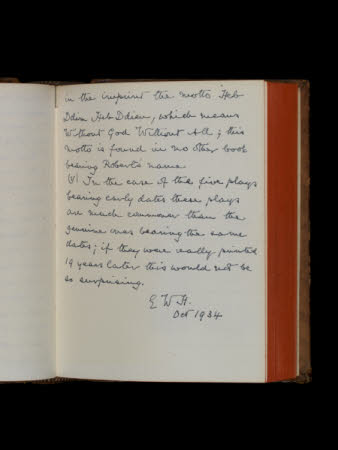 in the imprint the motto Heb
Ddieu Heb Ddieu, which means
Without God Without All; this
motto is found in no other book
bearing Roberts's name
In the case of the five plays
bearing early dates these plays
are much commoner than the
genuine ones bearing the same
dates; if they were really printed
19 years later this would not be
so surprising.
E W H.
Oct 1934